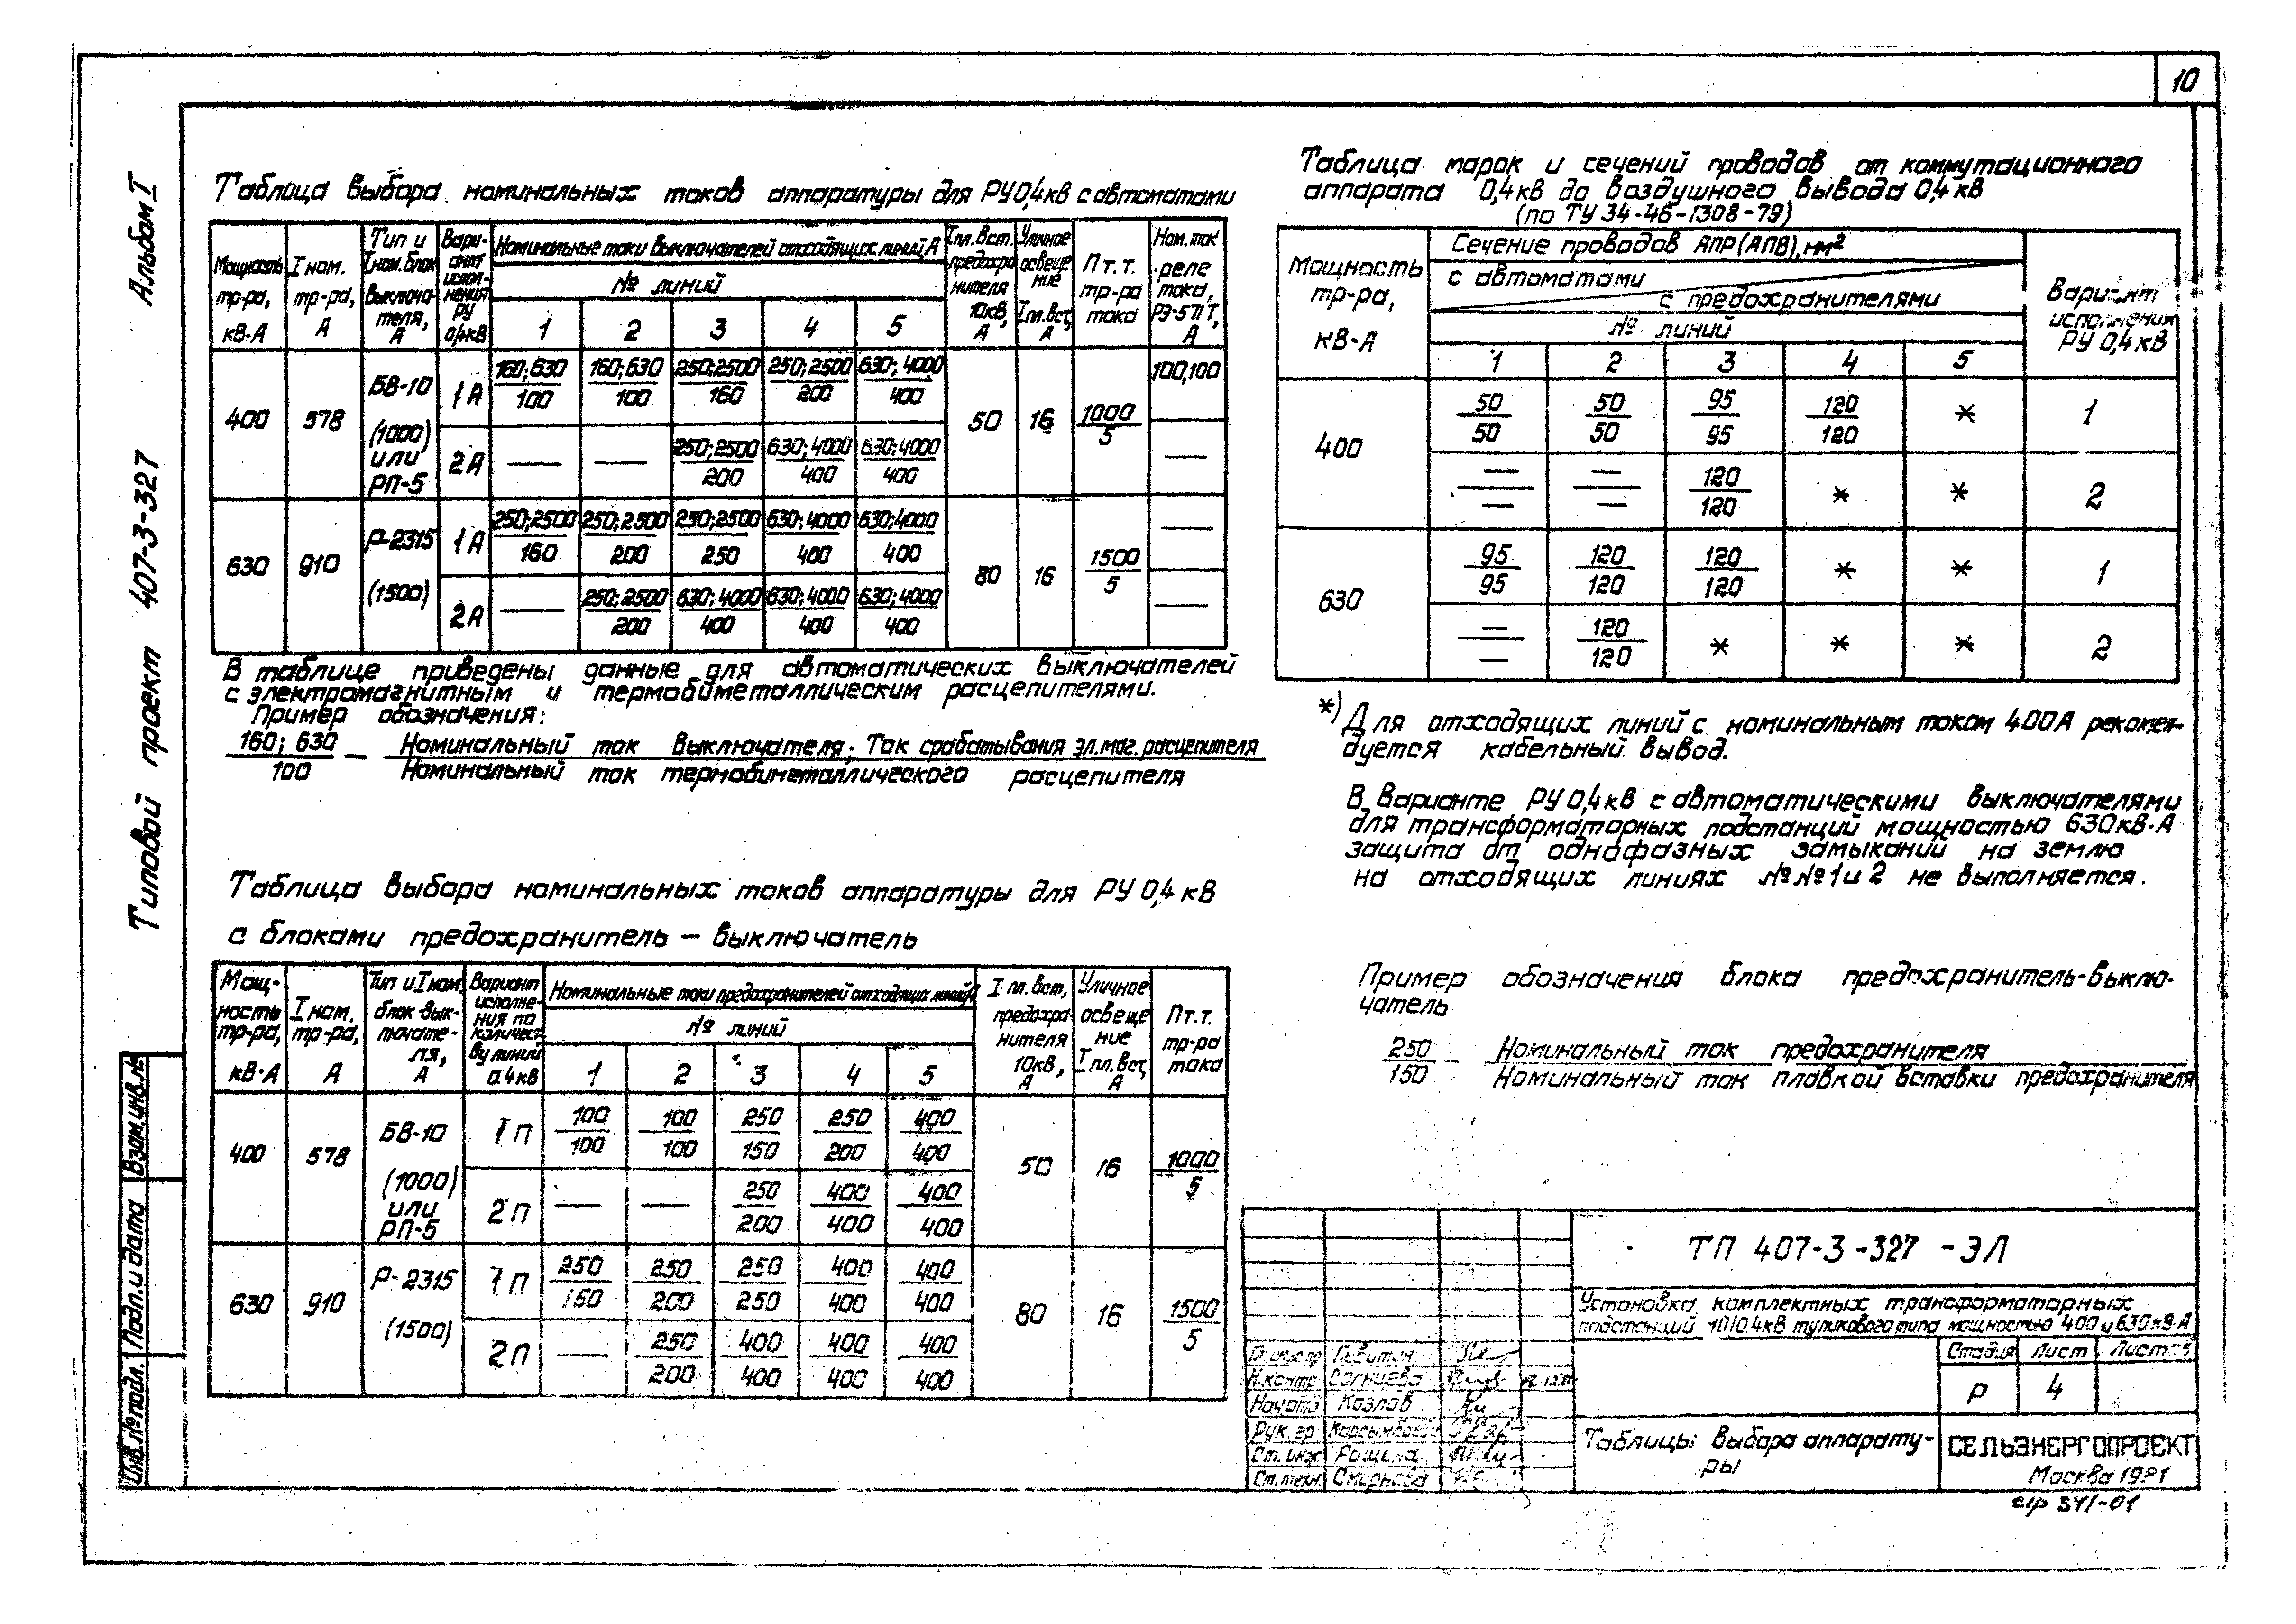 10
Альбом I
Типовой проект 407-3-327
Таблица выбора номинальных токов аппаратуры для РУ 0,4кВ с автоматами
Мощность тр-ра, кВ·А
I ном. тр-ра, А
Тип и I ном. блок выключателя, А
Вариант исполнения РУ 0,4кВ
Номинальные токи выключателей отходящих линий, А
№ линий
1 2 3 4 5
I пл. вст. предохранителя 10кВ, А
Уличное освещение I пл. вст, А
П т.т. тр-ра тока
Ном. ток реле тока, РЭ-571Т, А
400 578 БВ-10 (1000) или РП-5
1А 160;630/100 160;630/100 250;2500/160 250;2500/200 630;4000/400 50 16 1000/5 100,100
2А — — 250;2500/200 630;4000/400 630;4000/400 —
630 910 Р-2315 (1500)
1А 250;2500/160 250;2500/200 250;2500/250 630;4000/400 630;4000/400 80 16 1500/5 —
2А — 250;2500/200 630;4000/400 630;4000/400 630;4000/400 —
В таблице приведены данные для автоматических выключателей
с электромагнитным и термобиметаллическим расцепителями.
Пример обозначения:
160; 630 — Номинальный ток выключателя; Ток срабатывания эл.маг. расцепителя
100 Номинальный ток термобиметаллического расцепителя
Таблица выбора номинальных токов аппаратуры для РУ 0,4 кВ
с блоками предохранитель – выключатель
Мощность тр-ра, кВ·А
I ном. тр-ра, А
Тип и I ном. блок-выключателя, А
Вариант исполнения по количеству линий 0.4кВ
Номинальные токи предохранителей отходящих линий, А
№ линий
1 2 3 4 5
I пл. вст, предохранителя 10кВ, А
Уличное освещение I пл. вст, А
П т.т. тр-ра тока
400 578 БВ-10 (1000) или РП-5
1п 100/100 100/100 250/150 250/200 400/400 50 16 1000/5
2п — — 250/200 400/400 400/400
630 910 Р-2315 (1500)
1п 250/150 250/200 250/250 400/400 400/400 80 16 1500/5
2п — 250/200 400/400 400/400 400/400
Таблица марок и сечений проводов от коммутационного
аппарата 0,4кВ до воздушного вывода 0,4кВ
(по ТУ 34-46-1308-79)
Мощность тр-ра, кВ-А
Сечение проводов АПР(АПВ), мм²
с автоматами
с предохранителями
№ линий
1 2 3 4 5
Вариант исполнения РУ 0,4кВ
400 50/50 50/50 95/95 120/120 * 1
—/— —/— 120/120 * * 2
630 95/95 120/120 120/120 * * 1
—/— 120/120 * * * 2
*) Для отходящих линий с номинальным током 400А рекомен-
дуется кабельный вывод.
В Варианте РУ 0,4кВ с автоматическими выключателями
для трансформаторных подстанций мощностью 630кВ·А
защита от однофазных замыканий на землю
на отходящих линиях №№1 и 2 не выполняется.
Пример обозначения блока предохранитель-выклю-
чатель
250 – Номинальный ток предохранителя
150 Номинальный ток плавкой вставки предохранителя
ТП 407-3-327 -ЭЛ
Установка комплектных трансформаторных
подстанций 10/0.4кВ тупикового типа мощностью 400 и 630кВ·А
Стадия Лист Листов
Р 4
Н.контр Солнцева
Козлов
Рук. гр
Ст. инж Рощина
Ст. техн. Смирнова
Таблицы выбора аппарату-
ры
СЕЛЬЭНЕРГОПРОЕКТ
Москва 1981
Взам.инв.№
Подп. и дата
Инв.№ подл.